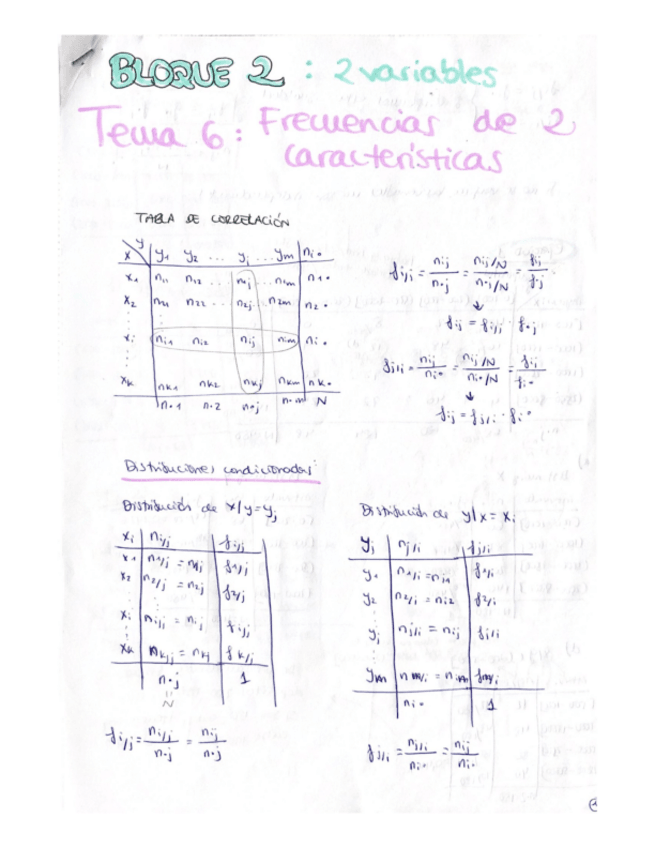 BLOQUE 2 : 2 variables
Tema 6: Frecuencias de 2
características
TABLA DE CORRELACIÓN
x \ y | y1 y2 ... yj ... ym | ni•
x1 | n11 n12 ... n1j ... n1m | n1•
x2 | n21 n22 ... n2j ... n2m | n2•
⋮
xi | ni1 ni2 nij nim | ni•
⋮
xk | nk1 nk2 nkj nkm | nk•
n•1 n•2 n•j n•m N
fi/j = nij / n•j = (nij/N) / (n•j/N) = fij / f•j
↓
fij = fi/j · f•j
fj/i = nij / ni• = (nij/N) / (ni•/N) = fij / fi•
↓
fij = fj/i · fi•
Distribuciones condicionadas:
Distribución de x/y=yj
xi | ni/j | fi/j
x1 | n1/j = n1j | f1/j
x2 | n2/j = n2j | f2/j
⋮
xi | ni/j = nij | fi/j
⋮
xk | nk/j = nkj | fk/j
n•j | 1
=
N
fi/j = ni/j / n•j = nij / n•j
Distribución de y/x = xi
yj | nj/i | fj/i
y1 | n1/i = ni1 | f1/i
y2 | n2/i = ni2 | f2/i
⋮
yj | nj/i = nij | fj/i
⋮
ym | nm/i = nim | fm/i
ni• | 1
fj/i = nj/i / ni• = nij / ni•